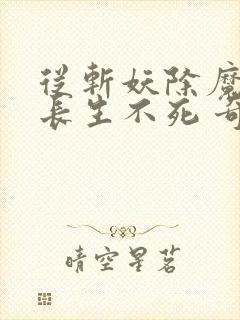 從斬妖除魔
長生不死 奇
晴空星茗